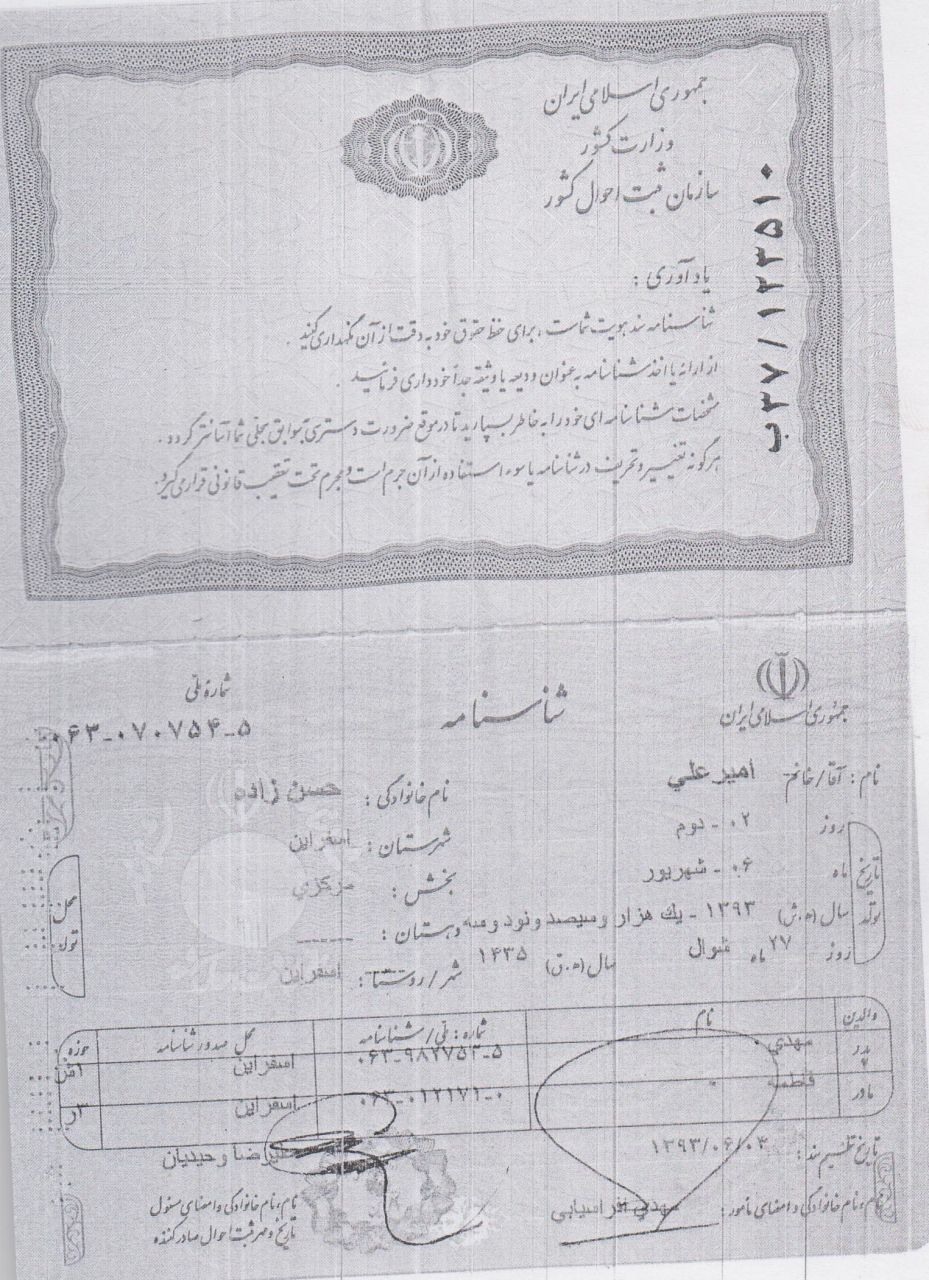 جمهوری اسلامی ایران
وزارت کشور
سازمان ثبت احوال کشور
ب۳۷/۱۲۳۵۱۰
یادآوری :
شناسنامه سند هویت شماست ، برای حفظ حقوق خود به دقت از آن نگهداری کنید .
از ارائه یا اخذ شناسنامه به عنوان ودیعه یا وثیقه جداً خودداری فرمائید .
مشخصات شناسنامه ای خود را به خاطر بسپارید تا در موقع ضرورت دسترسی بسوابق سجلی شما آسانتر گردد .
هرگونه تغییر و تحریف در شناسنامه یا سوء استفاده از آن جرم است و مجرم تحت تعقیب قانونی قرار می گیرد.
جمهوری اسلامی ایران
شناسنامه
شماره ملی
۰۶۳-۰۷۰۷۵۴-۵
نام : آقا/خانم امیر علي نام خانوادگی : حسن زاده
تاریخ تولد
روز ۰۲ - دوم
ماه ۰۶ - شهریور
سال (ه.ش) ۱۳۹۳ - یك هزار و سیصد و نود و سه
روز ۲۷ ماه شوال سال (ه.ق) ۱۴۳۵
محل تولد
شهرستان : اسفراین
بخش : مرکزي
دهستان : ------
شهر/روستا : اسفراین
والدین نام شماره : ملی/شناسنامه محل صدور شناسنامه حوزه
پدر مهدي ۰۶۳-۹۸۷۷۵۳-۵ اسفراین ۱ش
مادر فاطمه ۰۶۳-۰۱۲۱۷۱-۰ اسفراین ۳ر
تاریخ تنظیم سند : ۱۳۹۳/۰۶/۰۴
نام،نام خانوادگی و امضای مامور : مهدي افراسیابي
علیرضا وحیدیان
نام،نام خانوادگی و امضای مسئول
تاریخ و مهر ثبت احوال صادر کننده